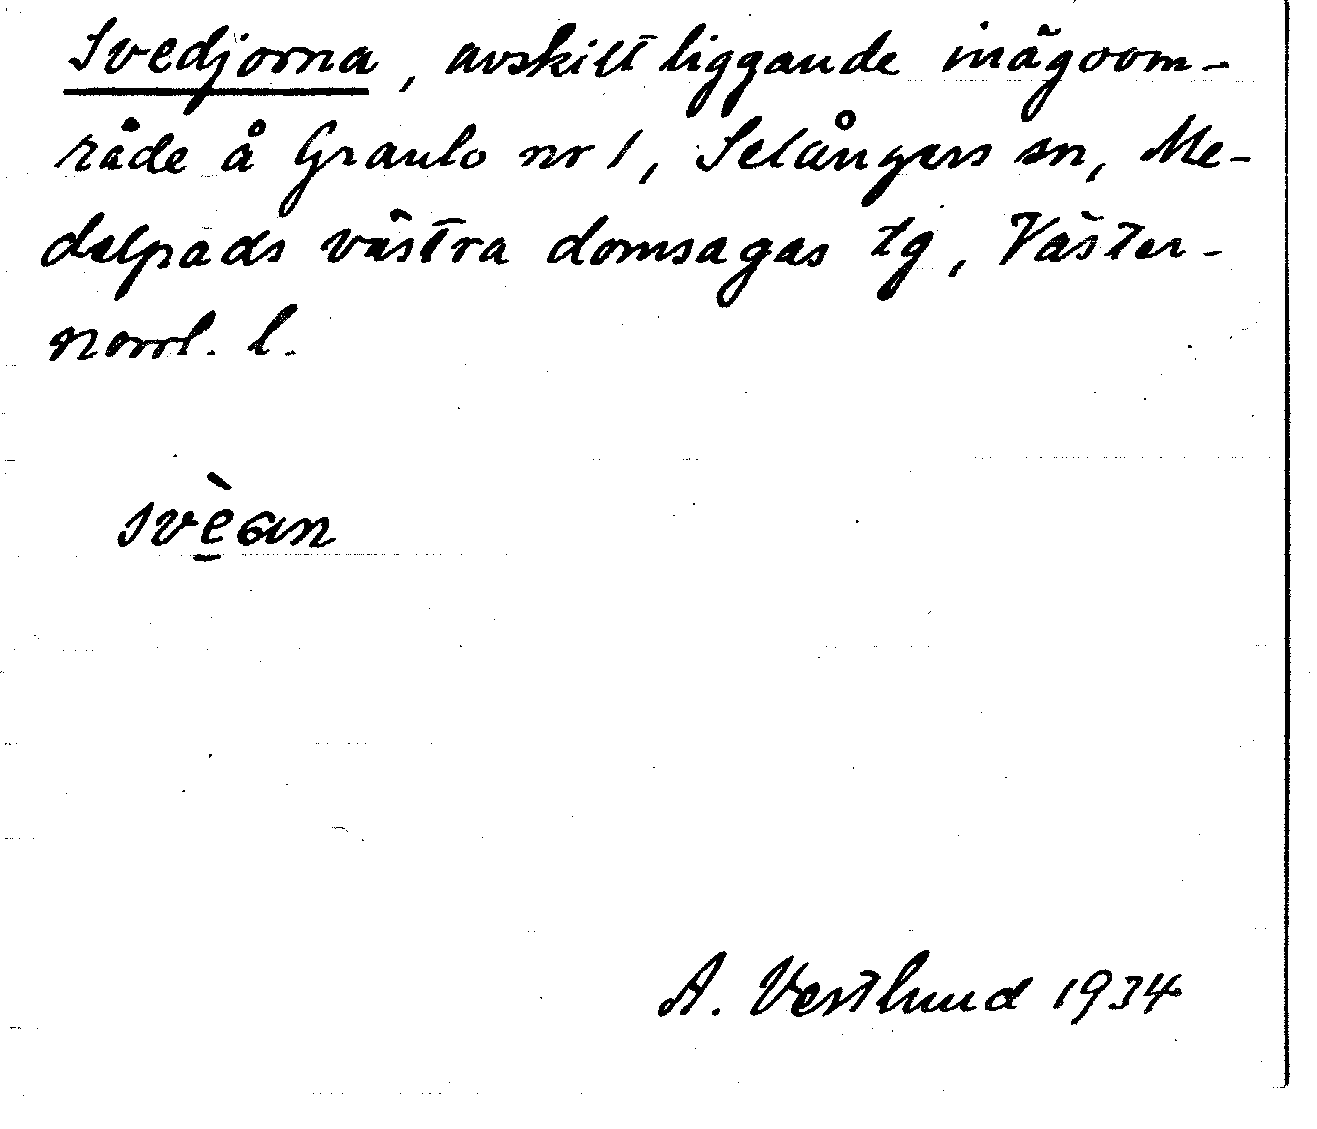 Svedjorna, avskilt liggande inägoom-
råde å Granlo nr 1, Selångers sn, Me-
delpads västra domsagas tg, Väster-
norrl. l.
svèan
A. Vestlund 1934